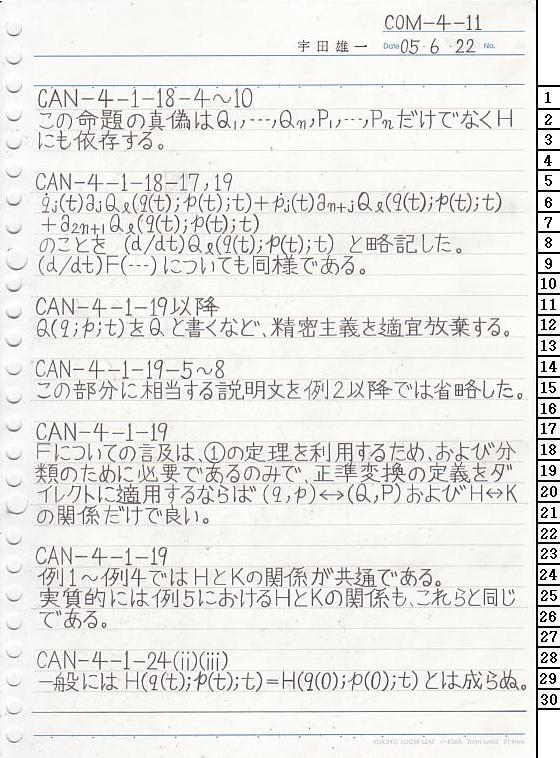 COM-4-11
宇田雄一 Date 05・6・22 No.
CAN-4-1-18-4～10
この命題の真偽はQ₁,…,Qn,P₁,…,PnだけでなくH
にも依存する。
CAN-4-1-18-17,19
q̇j(t)∂jQℓ(q(t);p(t);t)+ṗj(t)∂n+jQℓ(q(t);p(t);t)
+∂2n+1Qℓ(q(t);p(t);t)
のことを (d/dt)Qℓ(q(t);p(t);t) と略記した。
(d/dt)F(…)についても同様である。
CAN-4-1-19以降
Q(q;p;t)をQと書くなど、精密主義を適宜放棄する。
CAN-4-1-19-5～8
この部分に相当する説明文を例2以降では省略した。
CAN-4-1-19
Fについての言及は、①の定理を利用するため、および分
類のために必要であるのみで、正準変換の定義をダ
イレクトに適用するならば(q,p)↔(Q,P)およびH↔K
の関係だけで良い。
CAN-4-1-19
例1～例4ではHとKの関係が共通である。
実質的には例5におけるHとKの関係も、これらと同じ
である。
CAN-4-1-24(ii)(iii)
一般には H(q(t);p(t);t)=H(q(0);p(0);t) とは成らぬ。
KOKUYO LOOSE-LEAF ノ-836A 7mm ruled 31 lines
1
2
3
4
5
6
7
8
9
10
11
12
13
14
15
16
17
18
19
20
21
22
23
24
25
26
27
28
29
30